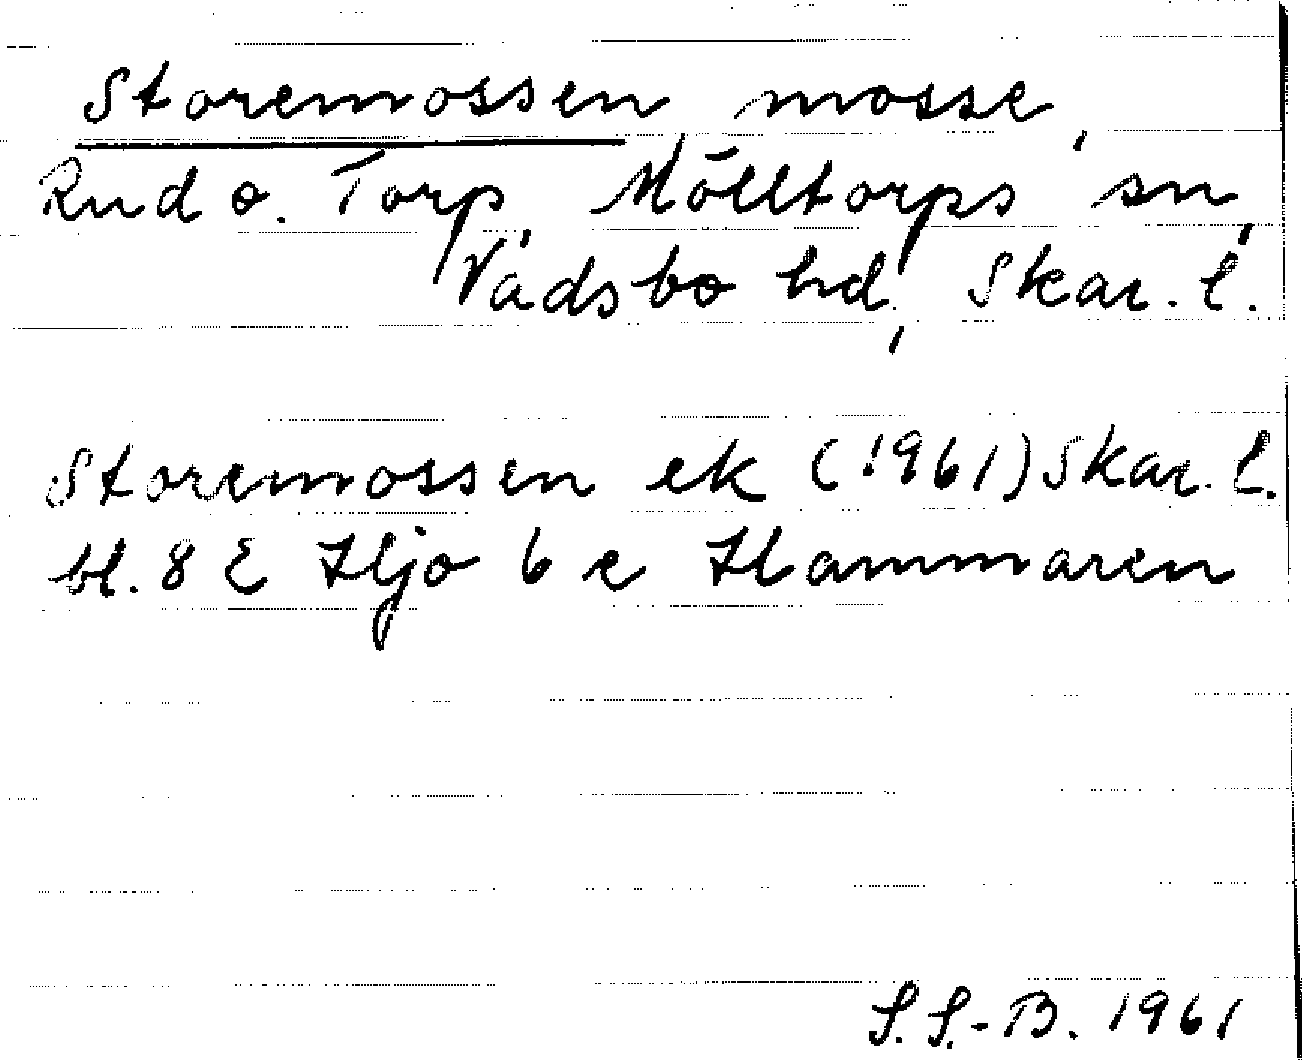 Storemossen mosse,
Rud o. Torp, Mölltorps sn,
Vadsbo hd, Skar. l.
Storemossen ek (1961) Skar. l.
bl. 8 E Hjo 6 e Hammaren
S. S.-B. 1961